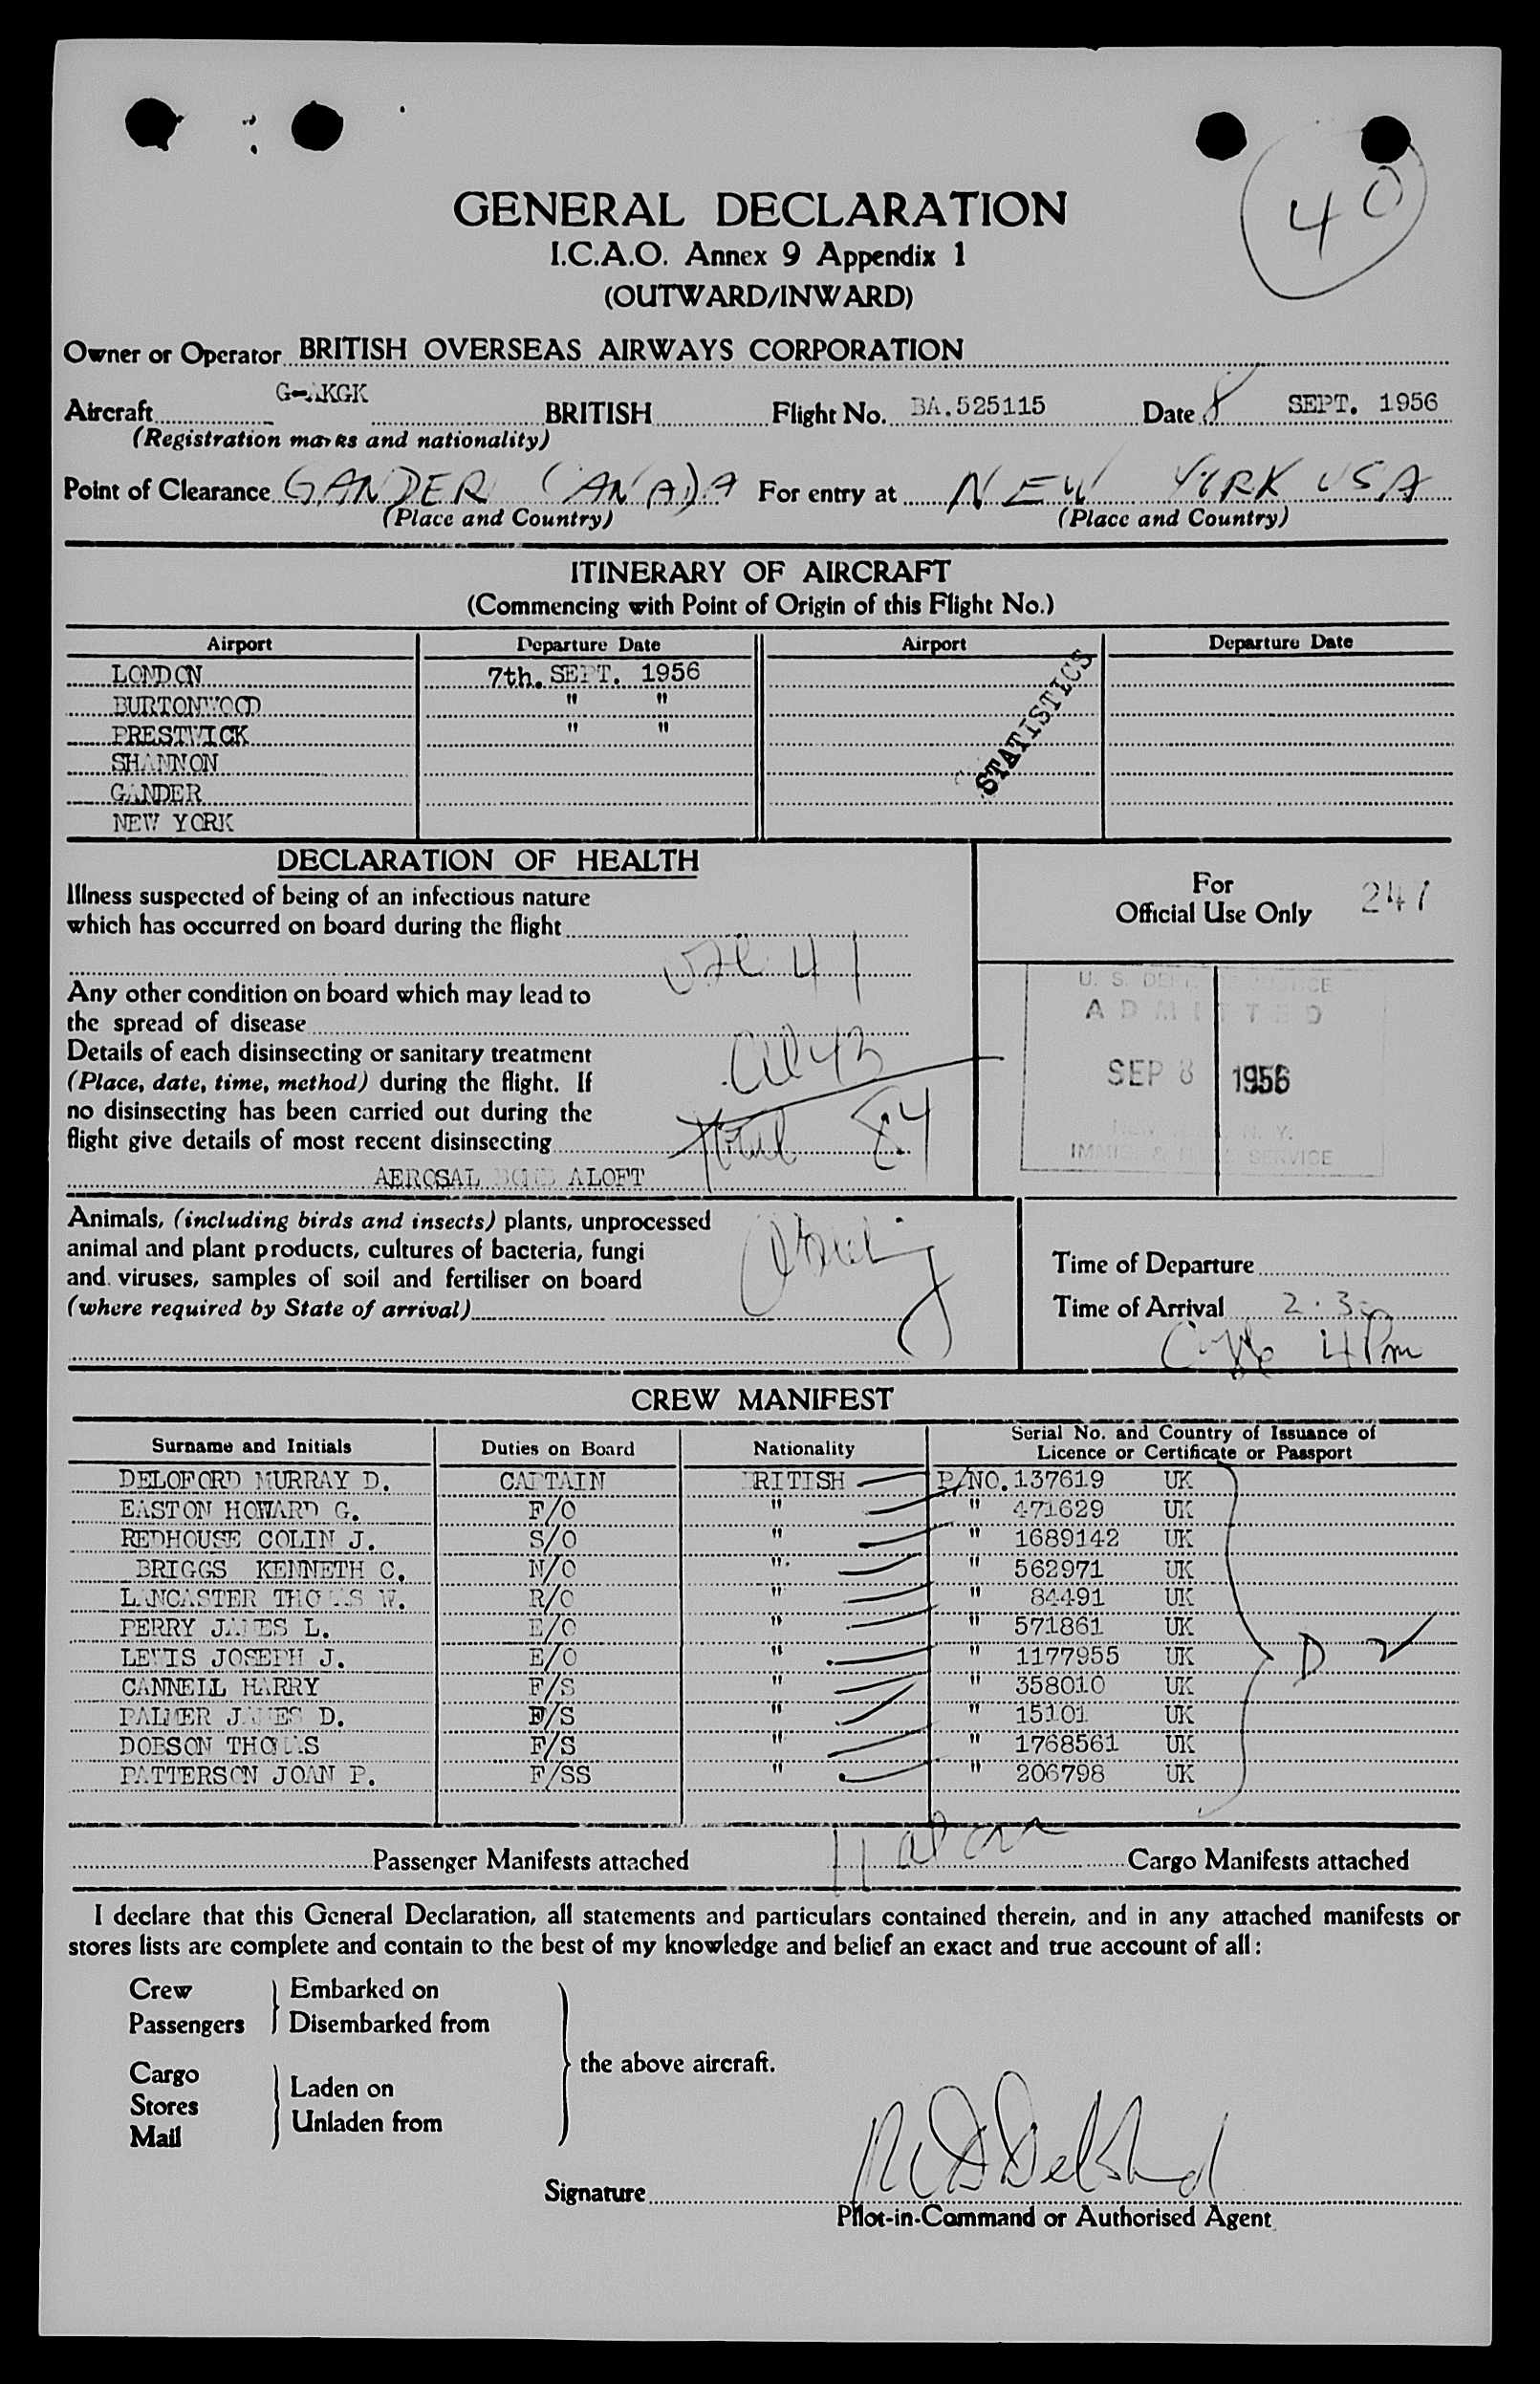 40
GENERAL DECLARATION
I.C.A.O. Annex 9 Appendix 1
(OUTWARD/INWARD)
Owner or Operator BRITISH OVERSEAS AIRWAYS CORPORATION
Aircraft G-AKGK BRITISH Flight No. BA.525115 Date 8 SEPT. 1956
(Registration marks and nationality)
Point of Clearance GANDER CANADA For entry at NEW YORK USA
(Place and Country) (Place and Country)
ITINERARY OF AIRCRAFT
(Commencing with Point of Origin of this Flight No.)
Airport Departure Date Airport Departure Date
LONDON 7th. SEPT. 1956
BURTONWOOD " "
PRESTWICK " "
SHANNON
GANDER
NEW YORK
STATISTICS
DECLARATION OF HEALTH
Illness suspected of being of an infectious nature
which has occurred on board during the flight
41
Any other condition on board which may lead to
the spread of disease
Details of each disinsecting or sanitary treatment
43
(Place, date, time, method) during the flight. If
no disinsecting has been carried out during the
flight give details of most recent disinsecting
Total 84
AEROSAL BOMB ALOFT
For
Official Use Only 247
U. S. DEPT. OF JUSTICE
ADMITTED
SEP 8 1956
NEW YORK, N. Y.
IMMIG. & NATZ. SERVICE
Animals, (including birds and insects) plants, unprocessed
animal and plant products, cultures of bacteria, fungi
and viruses, samples of soil and fertiliser on board
(where required by State of arrival)
Time of Departure
Time of Arrival 2.30
4 Pm
CREW MANIFEST
Surname and Initials Duties on Board Nationality Serial No. and Country of Issuance of Licence or Certificate or Passport
DELOFORD MURRAY D. CAPTAIN BRITISH P/NO. 137619 UK
EASTON HOWARD G. F/O " " 471629 UK
REDHOUSE COLIN J. S/O " " 1689142 UK
BRIGGS KENNETH C. N/O " " 562971 UK
LANCASTER THOMAS W. R/O " " 84491 UK
PERRY JAMES L. E/O " " 571861 UK
LEWIS JOSEPH J. E/O " " 1177955 UK
CANNELL HARRY F/S " " 358010 UK
PALMER JAMES D. F/S " " 15101 UK
DOBSON THOMAS F/S " " 1768561 UK
PATTERSON JOAN P. F/SS " " 206798 UK
D
11
Passenger Manifests attached Cargo Manifests attached
I declare that this General Declaration, all statements and particulars contained therein, and in any attached manifests or
stores lists are complete and contain to the best of my knowledge and belief an exact and true account of all:
Crew Embarked on
Passengers Disembarked from
the above aircraft.
Cargo
Stores Laden on
Mail Unladen from
Signature
Pilot-in-Command or Authorised Agent